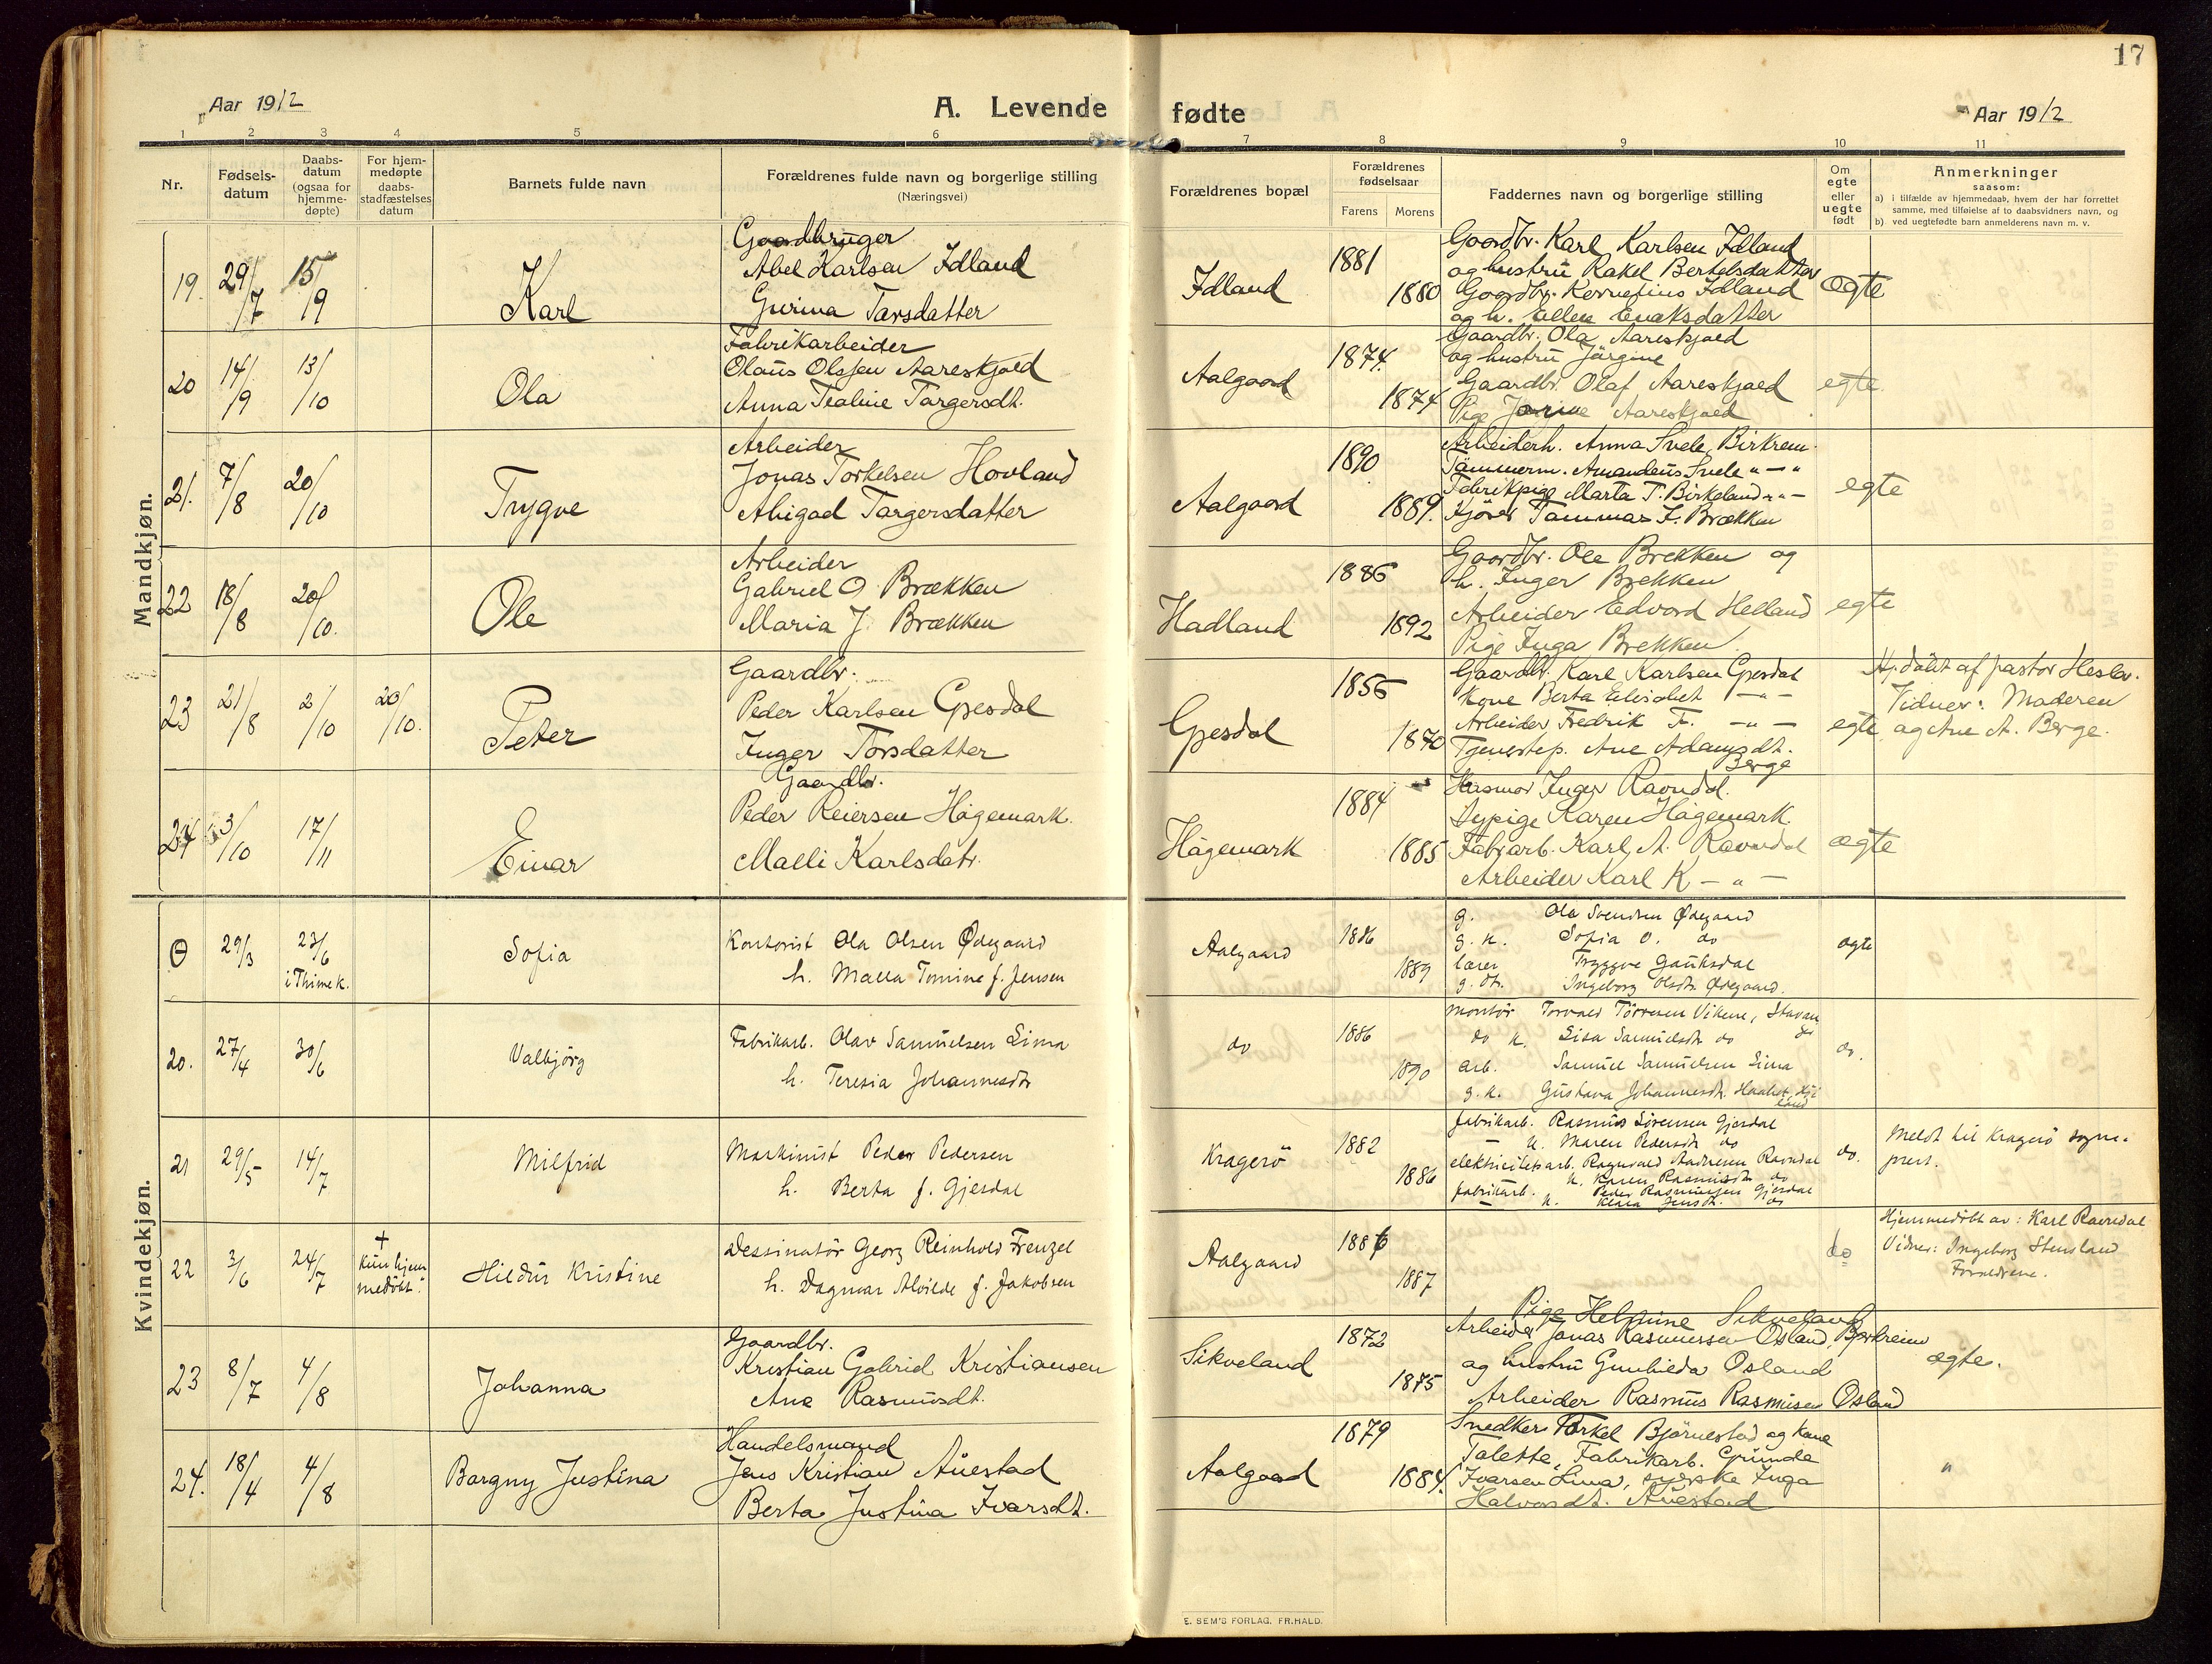 17
Aar 1912
A. Levende
fødte
Aar 1912
1 2 3 4 5 6 7 8 9 10 11
Nr.
Fødsels-
datum
Daabs-
datum
(ogsaa for
hjemme-
døpte)
For hjem-
medøpte
daabs-
stadfæstelses
datum
Barnets fulde navn
Forældrenes fulde navn og borgerlige stilling
(Næringsvei)
Forældrenes bopæl
Forældrenes
fødselsaar
Farens Morens
Faddernes navn og borgerlige stilling
Om
egte
eller
uegte
født
Anmerkninger
saasom:
a) i tilfælde av hjemmedaab, hvem der har forrettet
samme, med tilføielse af to daabsvidners navn, og
b) ved uegtefødte barn anmelderens navn m. v.
Mandkjøn.
19. 29/7 15/9 Karl
Gaardbruger
Abel Karlsen Idland
Gurina Tarsdatter
Idland 1881 1880
Gaardbr. Karl Karlsen Idland
og hustru Rakel Bertelsdatter
Gaardbr. Kornelius Idland
og h. Ellen Enoksdatter
egte
20 14/9 13/10 Ola
Fabrikarbeider
Olaus Olssen Aareskjold
Anna Tealine Targersdt.
Aalgaard 1874. 1874
Gaardbr. Ola Aareskjold
og hustru Jørgine
Gaardbr. Olaf Aareskjold
Pige Jorine Aareskjold
egte
21. 7/8 20/10 Trygve
Arbeider
Jonas Torkelsen Hovland
Abigael Targersdatter
Aalgaard 1890 1889.
Arbeiderh. Anna Svele, Birkrem.
Tømmerm. Amandeus Svele " — "
Fabrikpige Marta T. Birkeland " " —
Kjører Tammas F. Brækken
egte
22 18/8 20/10. Ole
Arbeider
Gabriel O. Brækken
Maria J. Brækken
Hadland 1886 1892
Gaardbr. Ole Brekken og
h. Inger Brekken
Arbeider Edvard Helland
Pige Inga Brekken
egte
23 21/8 2/10 20/10. Peter
Gaardbr.
Peder Karlsen Gjesdal
Inger Torsdatter
Gjesdal 1856 1870
Gaardbr. Karl Karlsen Gjesdal
Kone Berta Elisabet — " —
Arbeider Fredrik F. — " —
Tjenestep. Ane Adamsdt.
Berge
egte
Hj. døbt af pastor Hesla.
Vidner: Moderen
og Ane A. Berge.
24 3/10 17/11 Einar
Gaardbr.
Peder Reiersen Hagemark.
Malli Karlsdatr.
Hagemark 1884 1885
Husmor Inger Ravndal.
Sypige Karen Hagemark
Fabrarb. Karl A. Ravndal
Arbeider Karl K — " —
egte
Kvindekjøn.
29/3 23/6
i Thime k.
Sofia
Kontorist Ola Olsen Ødegaard
h. Malla Tomine f. Jensen
Aalgaard 1886 1889
g. Ola Svendsen Ødegaard
g. k. Sofia O. do
lærer Tryggve Gauksdal
g. dtr. Ingeborg Olsdtr. Ødegaard.
egte
20. 27/4 30/6 Valbjørg
Fabrikarb. Olav Samuelsen Lima
h. Teresia Johannesdtr
do 1886 1890
montør Torvald Tørresen Vikene, Stavan
do k. Lisa Samuelsdtr do do
arb. Samuel Samuelsen Lima
g. k. Gustava Johannesdtr.
do.
21 29/5 14/7 Milfrid
Maskinist Peder Pedersen
h. Berta f. Gjesdal
Kragerö 1882 1886
fabrikarb. Rasmus Sørensen Gjesdal
— k. Maren Pedersdtr do
elektricitetsarb. Ragnvald Andresen Ravndal
k. Karen Rasmusdtr do
fabrikarb. Peder Rasmussen Gjesdal
— k. Klara Jensdtr. do
do.
Meldt til Kragerö sogne-
prest.
22 3/6 24/7
+
Kun hjem
medøbt.
Hildur Kristine
Dessinatör Georg Reinhold Frenzel
h. Dagmar Alvilde f. Jakobsen
Aalgaard 1886 1887
do
Hjemmedöbt av: Karl Ravndal
Vidner: Ingeborg Stensland
Forældrene.
23 8/7 4/8 Johanna
Gaardbr.
Kristian Gabriel Kristiansen
Ane Rasmusdt.
Sikveland 1872 1875
Pige Helmine Sikveland
Arbeider Jonas Rasmussen Osland, Bjerkreim
og hustru Gunhilda Osland
Arbeider Rasmus Rasmusen Osland
egte.
24. 18/4 4/8 Borgny Justina
Handelsmand
Jens Kristian Auestad
Berta Justina Ivarsdt.
Aalgaard 1879 1884.
Snedker Torkel Bjørnestad og kone
Talette, Fabrikarb. Gunda
Ivarsen Lima, syerske Inga
Halvorsdt. Auestad
"
E. SEM'S FORLAG. FR.HALD.